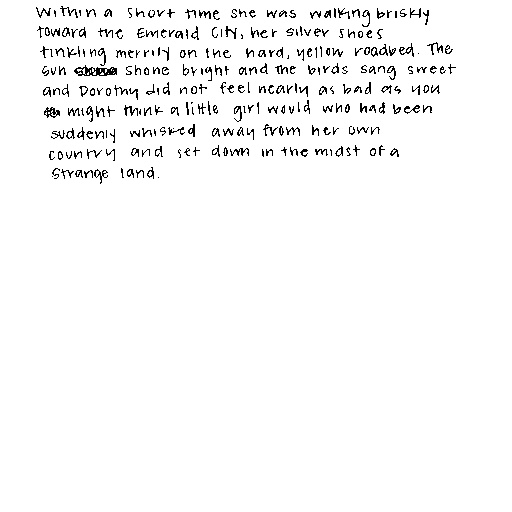 Within a short time she was walking briskly
toward the Emerald City, her silver shoes
tinkling merrily on the hard, yellow roadbed. The
sun shone bright and the birds sang sweet
and Dorothy did not feel nearly as bad as you
might think a little girl would who had been
suddenly whisked away from her own
country and set down in the midst of a
strange land.